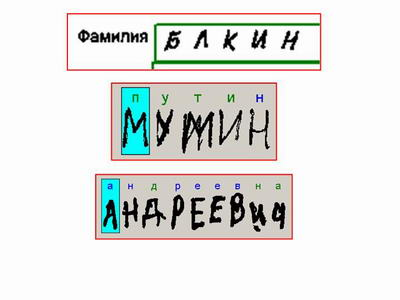 Фамилия Б Л К И Н
п у т и н
а н д р е е в н а
АНДРЕЕВич